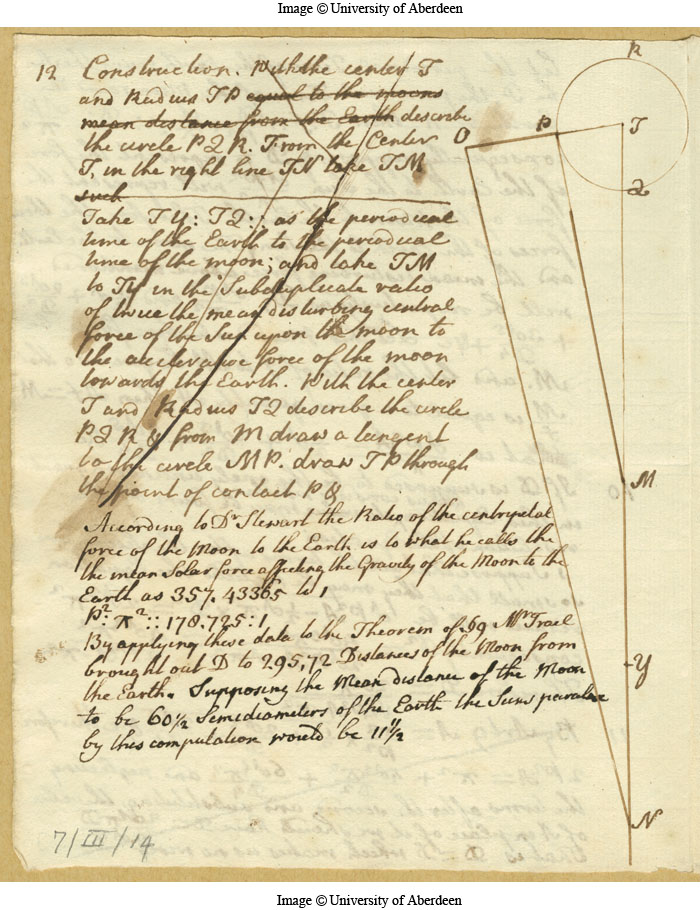 Image © University of Aberdeen
12 Construction. With the center T
and Radius TP equal to the moons
mean distance from the Earth describe
the circle PQR. From the Center
T, in the right line TN take TM
such
Take TY : TQ :: as the periodical
time of the Earth to the periodical
time of the moon; and take TM
to TY in the Subduplicate ratio
of twice the mean disturbing central
force of the Sun upon the moon to
the accelerative force of the moon
towards the Earth. With the center
T and Radius TQ describe the circle
PQR & from M draw a tangent
to the circle MP. draw TP through
the point of contact P &
According to Dr Stewart the Ratio of the centripetal
force of the Moon to the Earth is to what he calls the
the mean Solar force affecting the Gravity of the Moon to the
Earth as 357.43365 to 1
P²: π²:: 178.725:1
By applying these data to the Theorem of .69 Mr Trail
brought out D to 295,72 Distances of the Moon from
the Earth. Supposing the Mean distance of the Moon
to be 60½ Semidiameters of the Earth the Suns paralax
by this computation would be 11½
7/III/14
R
T
P
O
Q
M
Y
N
Image © University of Aberdeen